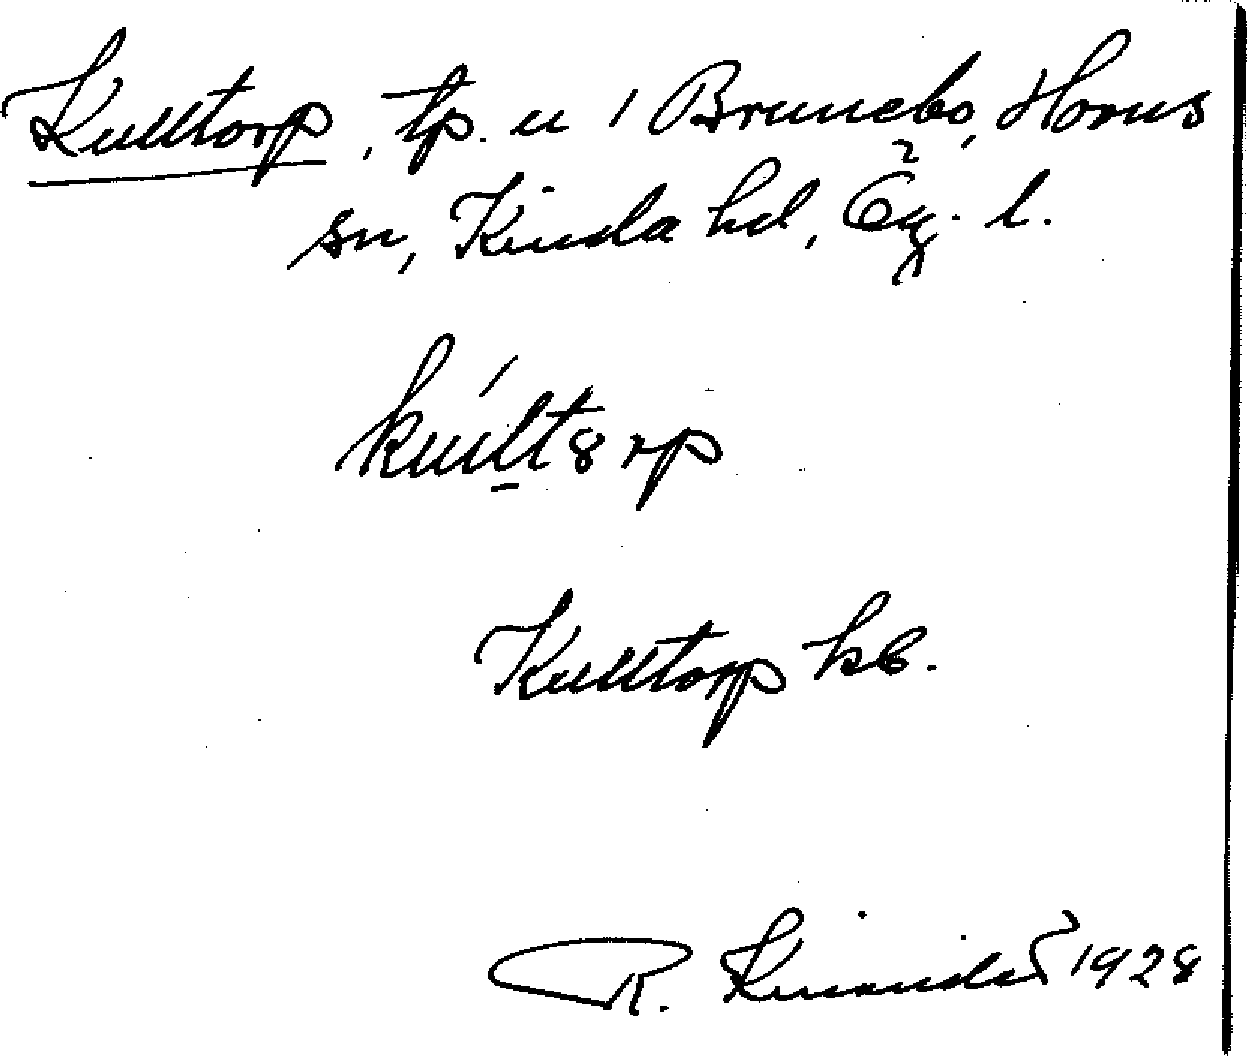 Kulltorp, tp. u / Brunebo, Horns
sn, Kinda hd, Ög. l.
kúllt8rp
Kulltorp kb.
R. 1928